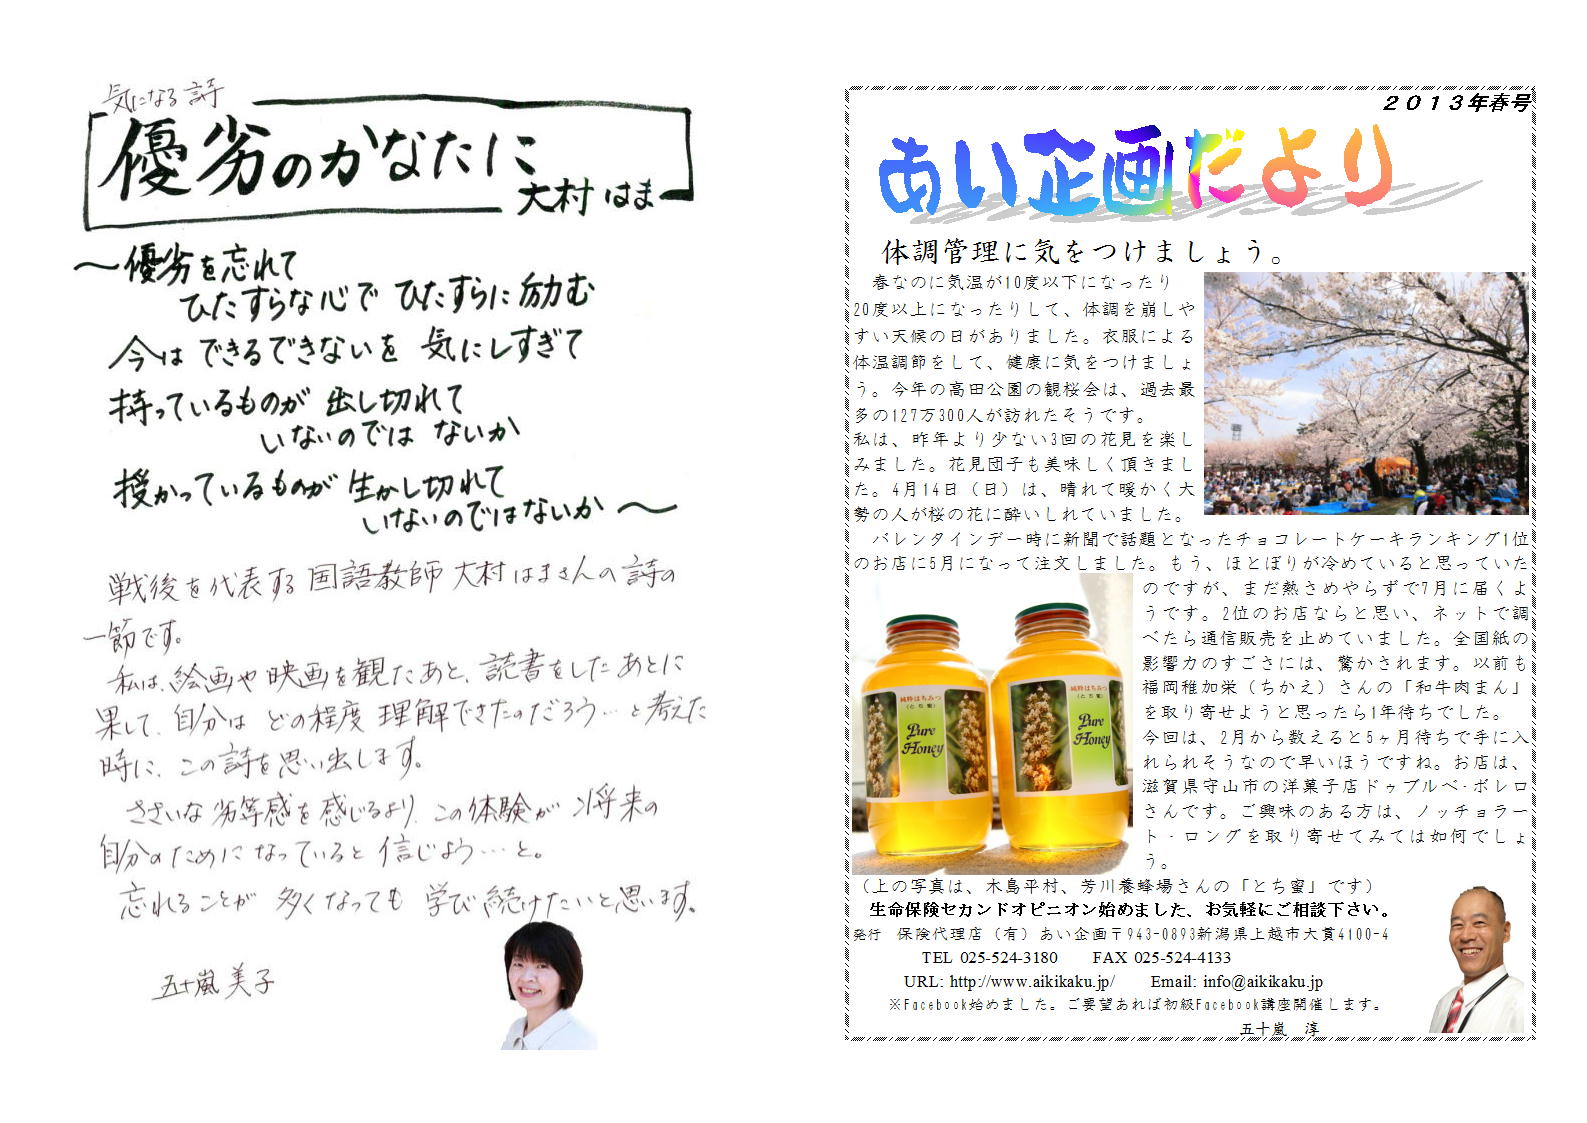 気になる詩
優劣のかなたに
大村はま
～優劣を忘れて
ひたすらな心で ひたすらに励む
今は できるできないを 気にしすぎて
持っているものが 出し切れて
いないのでは ないか
授かっているものが 生かし切れて
いないのではないか～
戦後を代表する国語教師大村はまさんの詩の
一節です。
私は、絵画や映画を観たあと、読書をしたあとに
果して、自分は どの程度 理解できたのだろう…と考えた
時に、この詩を思い出します。
ささいな劣等感を感じるより、この体験が 将来の
自分のために なっていると 信じよう…と。
忘れることが 多くなっても 学び続けたいと思います。
五十嵐 美子
２０１３年春号
あい企画だより
体調管理に気をつけましょう。
春なのに気温が10度以下になったり
20度以上になったりして、体調を崩しや
すい天候の日がありました。衣服による
体温調節をして、健康に気をつけましょ
う。今年の高田公園の観桜会は、過去最
多の127万300人が訪れたそうです。
私は、昨年より少ない3回の花見を楽し
みました。花見団子も美味しく頂きまし
た。4月14日（日）は、晴れて暖かく大
勢の人が桜の花に酔いしれていました。
バレンタインデー時に新聞で話題となったチョコレートケーキランキング1位
のお店に5月になって注文しました。もう、ほとぼりが冷めていると思っていた
のですが、まだ熱さめやらずで7月に届くよ
うです。2位のお店ならと思い、ネットで調
べたら通信販売を止めていました。全国紙の
影響力のすごさには、驚かされます。以前も
福岡稚加栄（ちかえ）さんの「和牛肉まん」
を取り寄せようと思ったら1年待ちでした。
今回は、2月から数えると5ヶ月待ちで手に入
れられそうなので早いほうですね。お店は、
滋賀県守山市の洋菓子店ドゥブルベ・ボレロ
さんです。ご興味のある方は、ノッチョラー
ト・ロングを取り寄せてみては如何でしょ
う。
純粋はちみつ
（とち蜜）
Pure
Honey
純粋はちみつ
（とち蜜）
Pure
Honey
（上の写真は、木島平村、芳川養蜂場さんの「とち蜜」です）
生命保険セカンドオピニオン始めました、お気軽にご相談下さい。
発行　保険代理店（有）あい企画〒943-0893新潟県上越市大貫4100-4
TEL 025-524-3180　FAX 025-524-4133
URL: http://www.aikikaku.jp/　Email: info@aikikaku.jp
※Facebook始めました。ご要望あれば初級Facebook講座開催します。
五十嵐　淳